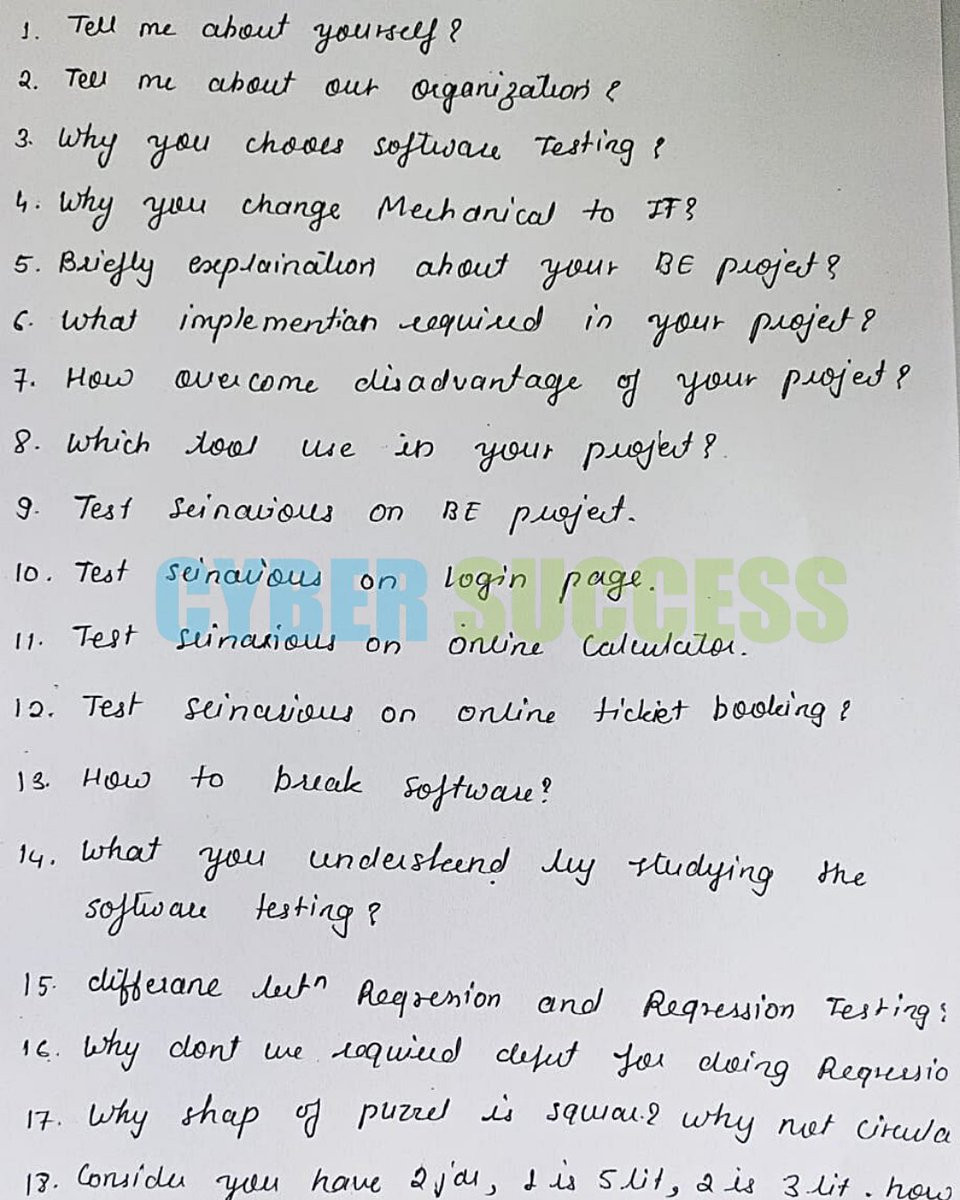 1. Tell me about yourself?
2. Tell me about our organization?
3. Why you chooes software Testing?
4. Why you change Mechanical to IT?
5. Briefly explaination about your BE project?
6. What implemention required in your project?
7. How overcome disadvantage of your project?
8. Which tool use in your project?
9. Test seinarious on BE project.
10. Test seinarious on login page.
CYBER SUCCESS
11. Test seinarious on online calculator.
12. Test seinarious on online ticket booking?
13. How to break software?
14. What you understand by studying the
software testing?
15. differane betn Regression and Regression Testing?
16. Why dont we required defut for doing Regressio
17. Why shap of puzzel is squar? why not circula
18. Consider you have 2 jar, 1 is 5 lit, 2 is 3 lit. how